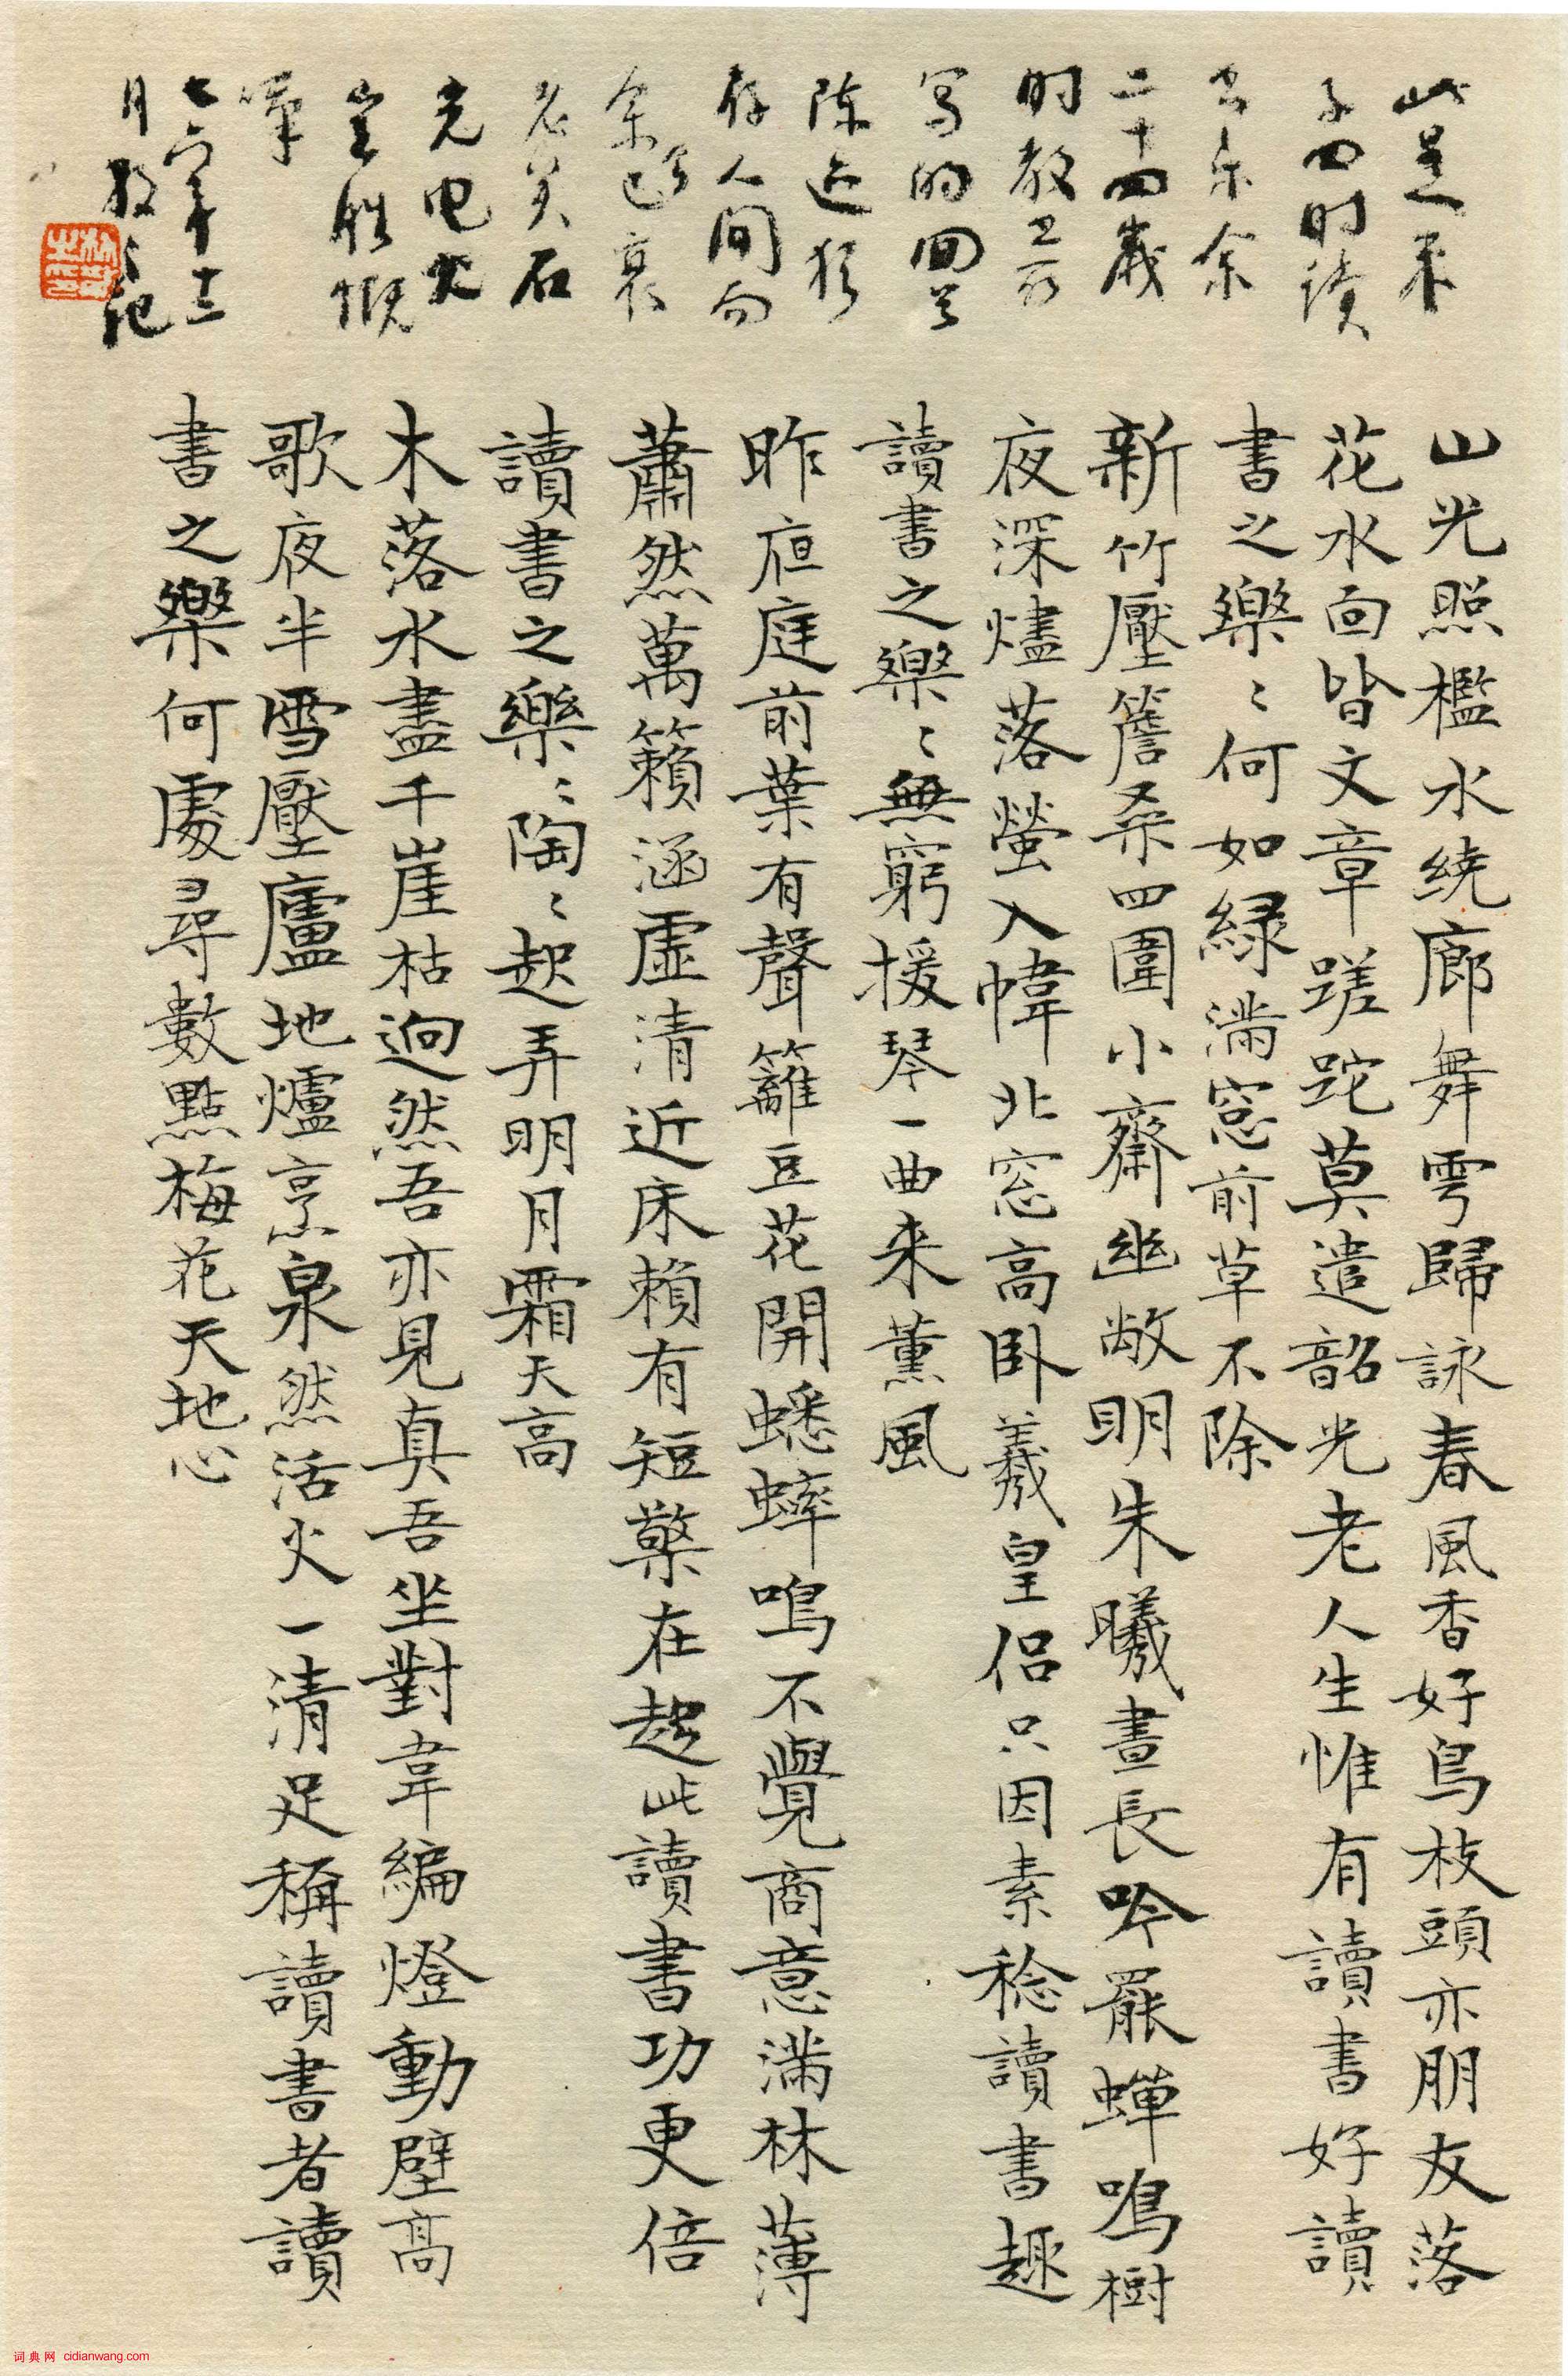 山光照檻水繞廊舞雩歸詠春風香好鳥枝頭亦朋友落
花水面皆文章蹉跎莫遣韶光老人生惟有讀書好讀
書之樂〻何如緑滿窓前草不除
新竹壓簷桑四圍小齋幽敞明朱曦晝長吟罷蟬鳴樹
夜深燼落螢入幃北窓高卧羲皇侣只因素稔讀書趣
讀書之樂〻無窮援琴一曲来薰風
昨夜庭前葉有聲籬豆花開蟋蟀鳴不覺商意滿林薄
蕭然萬籟涵虛清近床賴有短檠在起此讀書功更倍
讀書之樂〻陶〻起弄明月霜天高
木落水盡千崖枯迥然吾亦見真吾坐對韋編燈動壁高
歌夜半雪壓廬地爐烹泉然活火一清足稱讀書者讀
書之樂何處尋數點梅花天地心
此是
子四時讀
書乐余
二十四歲
時教
寫的回首
陈迹猶
存人間而
余已衰
老矣石
光电火
豈勝慨
嘆
七六年十二
月散之记
词典网 cidianwang.com